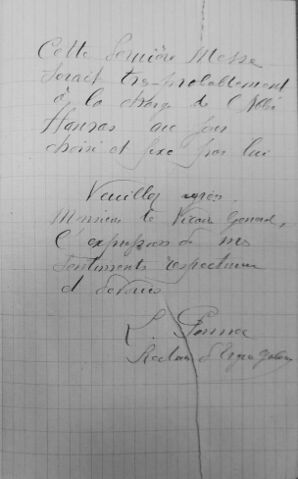 Cette dernière Messe
serait très probablement
à la charge de l'Abbé
au jour
choisi et fixé par lui
Veuillez agréer
Monsieur le Vicaire Général,
l'expression de mes
sentiments respectueux
et dévoués